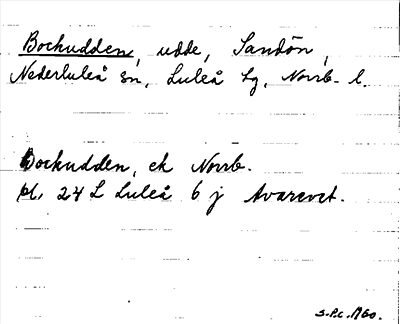 Bockudden, udde, Sandön,
Nederluleå sn, Luleå lg, Norrb. l.
Bockudden, ek Norrb.
bl. 24 L Luleå 6 j Avarevet.
S.P.C. 1960.